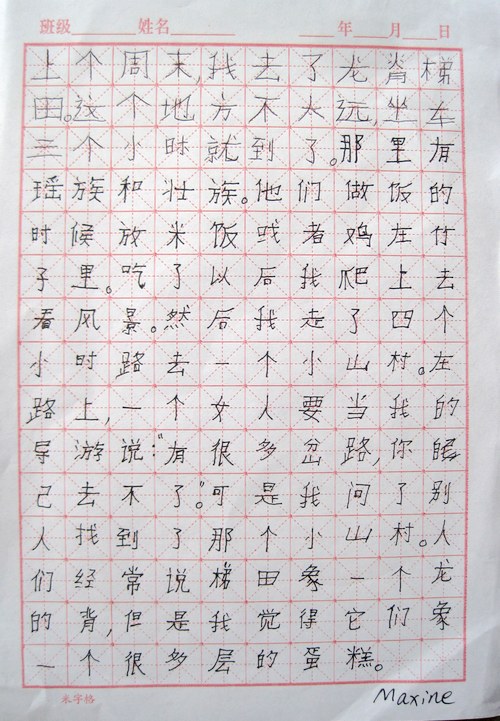 班级______ 姓名______ ____年____月____日
上个周末,我去了龙脊梯
田。这个地方不太远,坐车
三个小时就到了。那里有
瑶族和壮族。他们做饭的
时候放米饭或者鸡在竹
子里。吃了以后我爬上去
看风景。然后我走了四个
小时路去一个小山村。在
路上,一个女人要当我的
导游说:“有很多岔路,你
己去不了。”可是我问了别
人找到了那个小山村。人
们经常说梯田象一个龙
的背,但是我觉得它们象
一个很多层的蛋糕。
米字格
Maxine